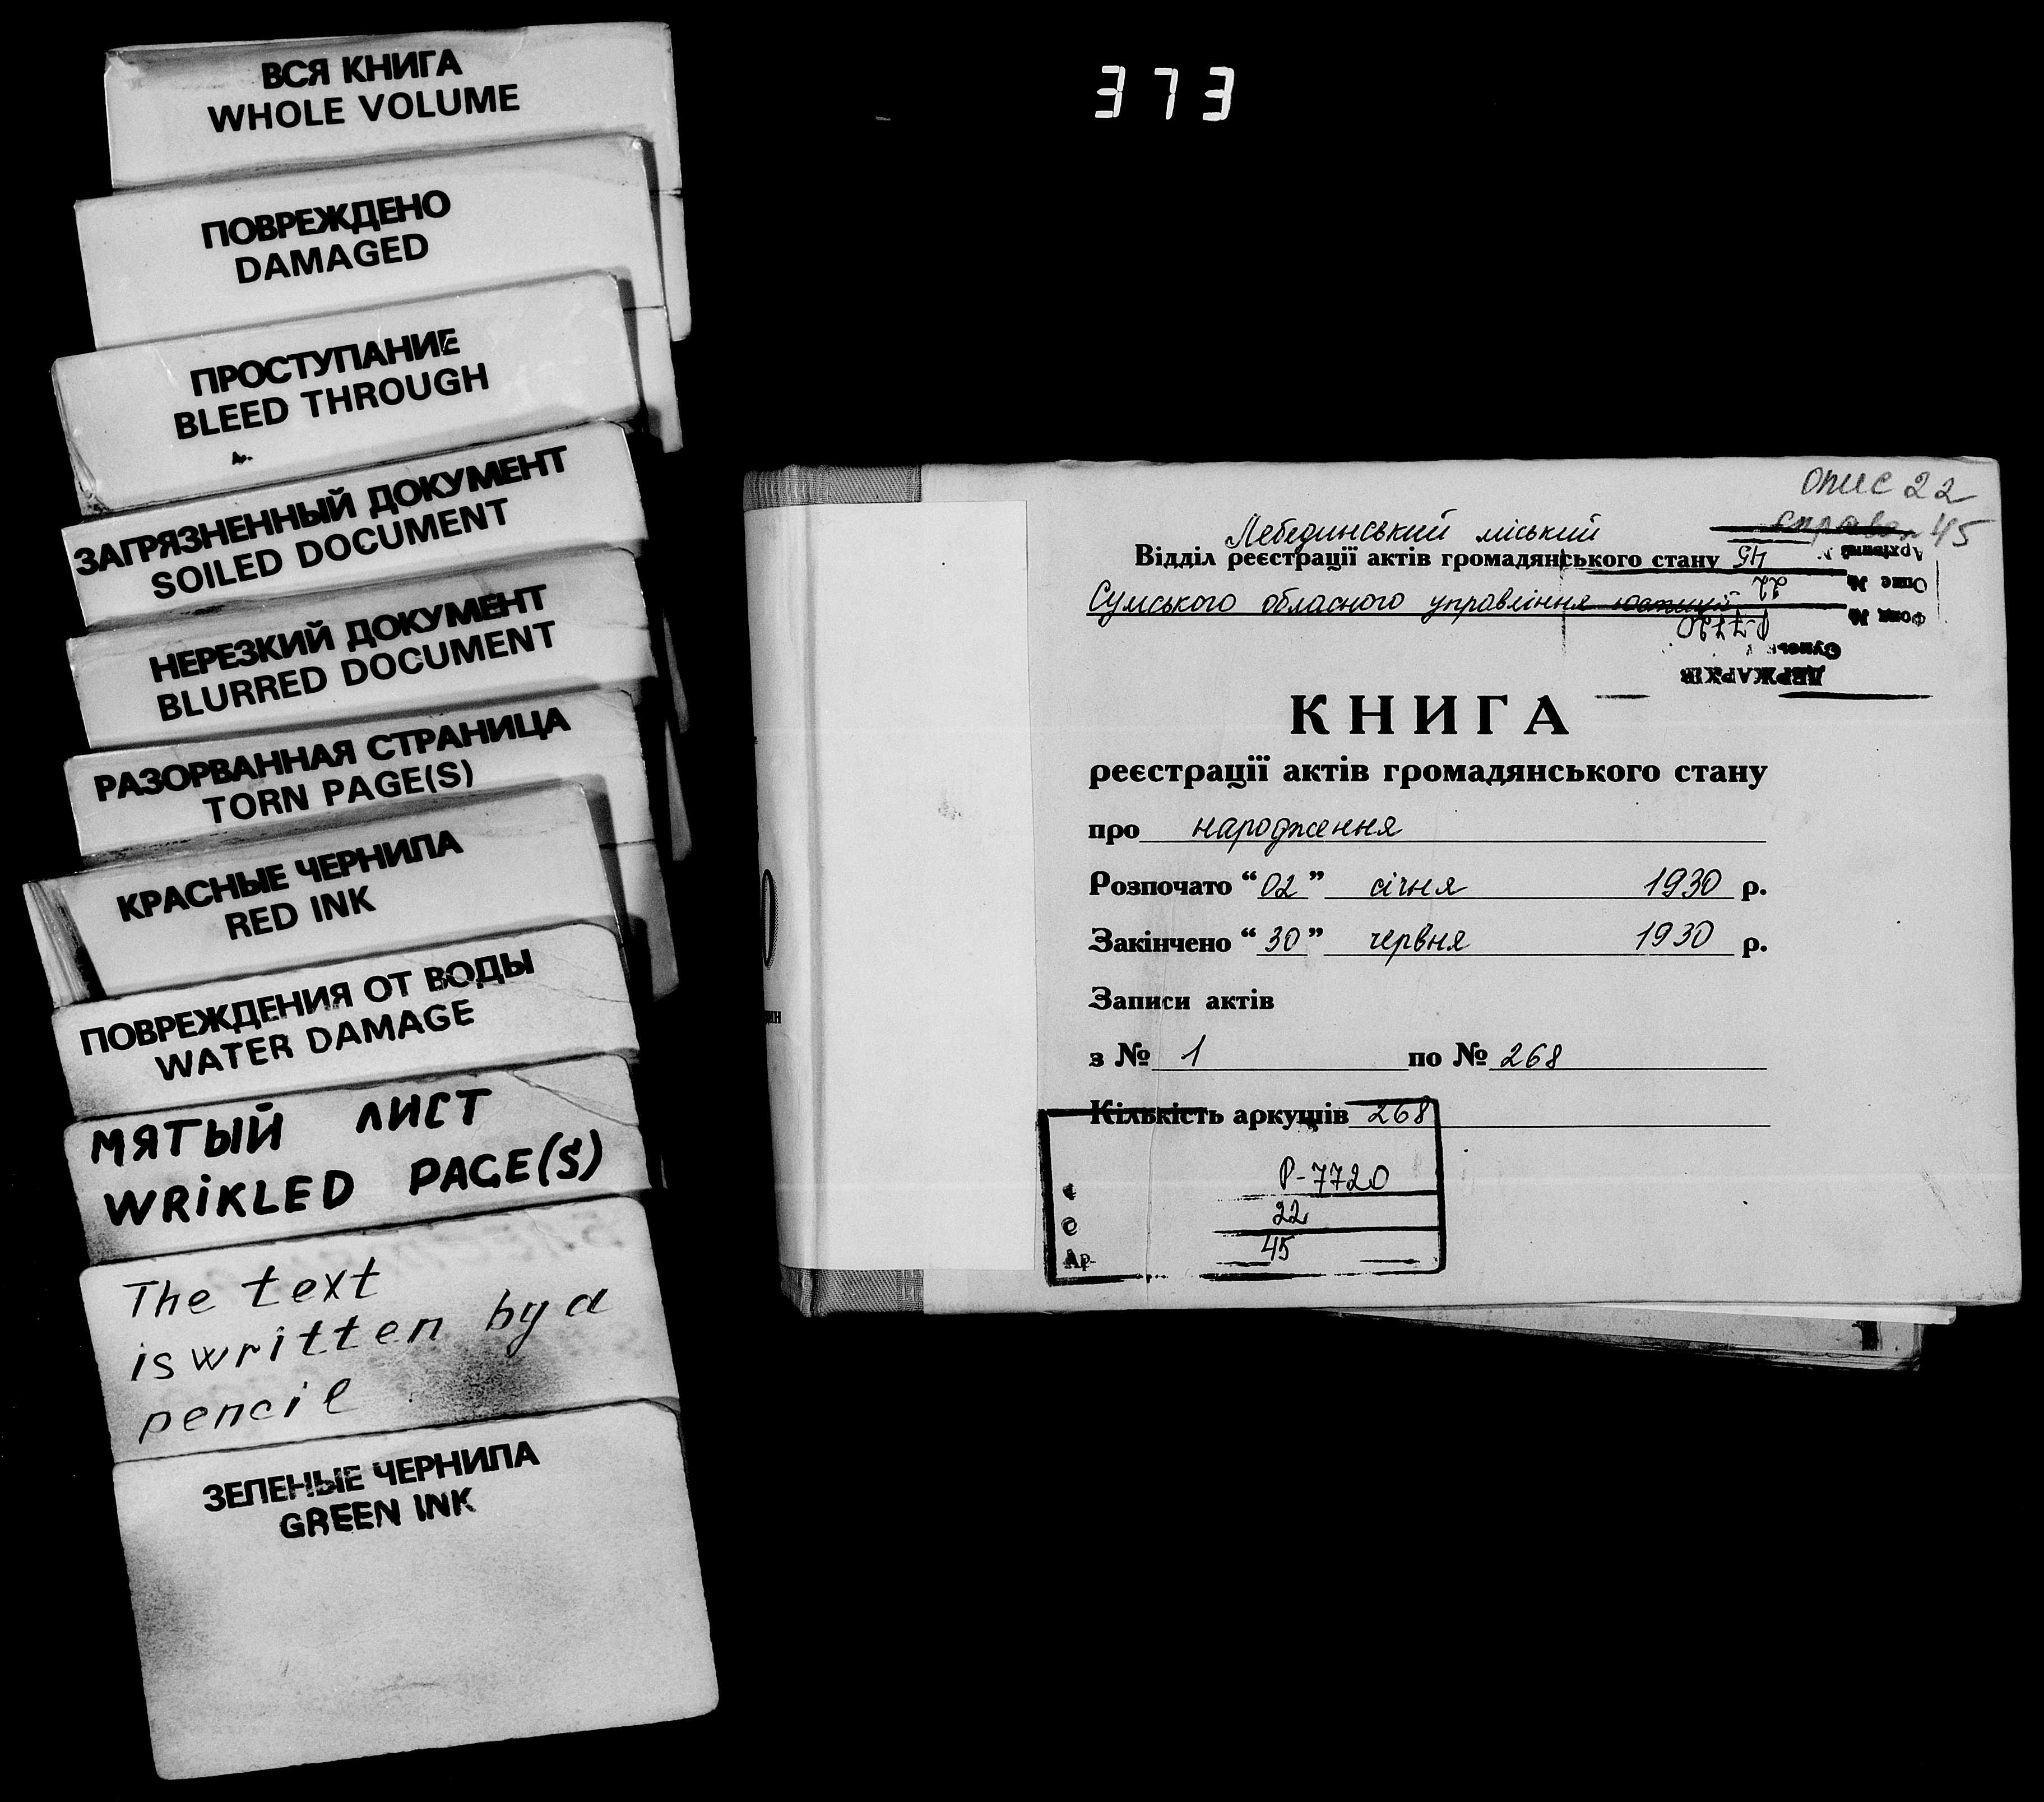 ВСЯ КНИГА
WHOLE VOLUME
ПОВРЕЖДЕНО
DAMAGED
ПРОСТУПАНИЕ
BLEED THROUGH
ЗАГРЯЗНЕННЫЙ ДОКУМЕНТ
SOILED DOCUMENT
НЕРЕЗКИЙ ДОКУМЕНТ
BLURRED DOCUMENT
РАЗОРВАННАЯ СТРАНИЦА
TORN PAGE(S)
КРАСНЫЕ ЧЕРНИЛА
RED INK
ПОВРЕЖДЕНИЯ ОТ ВОДЫ
WATER DAMAGE
МЯТЫЙ ЛИСТ
WRiKLED PAGE(S)
The text
is written by a
pencil
ЗЕЛЕНЫЕ ЧЕРНИЛА
GREEN INK
373
опис 22
справа 45
Лебединський міський
Відділ реєстрації актів громадянського стану
Сумського обласного управління юстиції
ДЕРЖАРХІВ
Р-7720
Фонд №
22
Опис №
45
КНИГА
реєстрації актів громадянського стану
про народження
Розпочато “02” січня 1930 р.
Закінчено “30” червня 1930 р.
Записи актів
з № 1 по № 268
Кількість аркушів 268
Р-7720
22
45